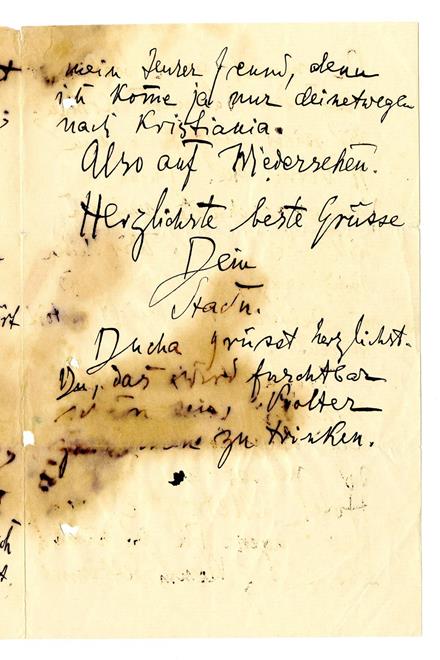 mein teurer Freund, denn
ich kome ja nur deinetwegen
nach Kristiania.
Also auf Wiedersehen.
Herzlichste beste Grüsse
Dein
Stachu.
Ducha grüsst herzlichst.
Du, das wird furchtbar
schön sein, Pjolter
zu trinken.